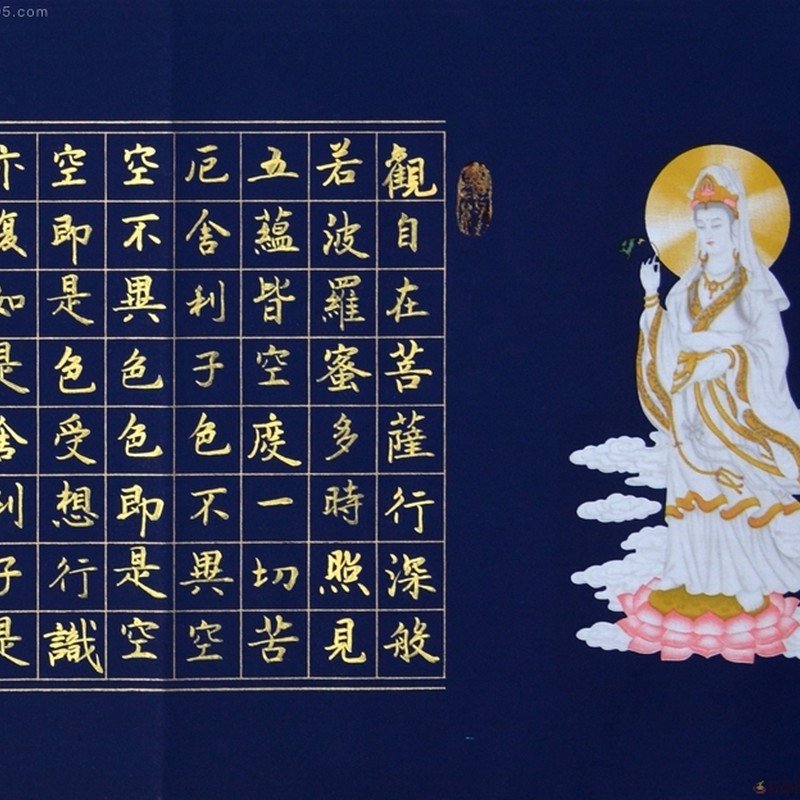 觀自在菩薩行深般
若波羅蜜多時照見
五蘊皆空度一切苦
厄舍利子色不異空
空不異色色即是空
空即是色受想行識
亦復如是舍利子是
5.com